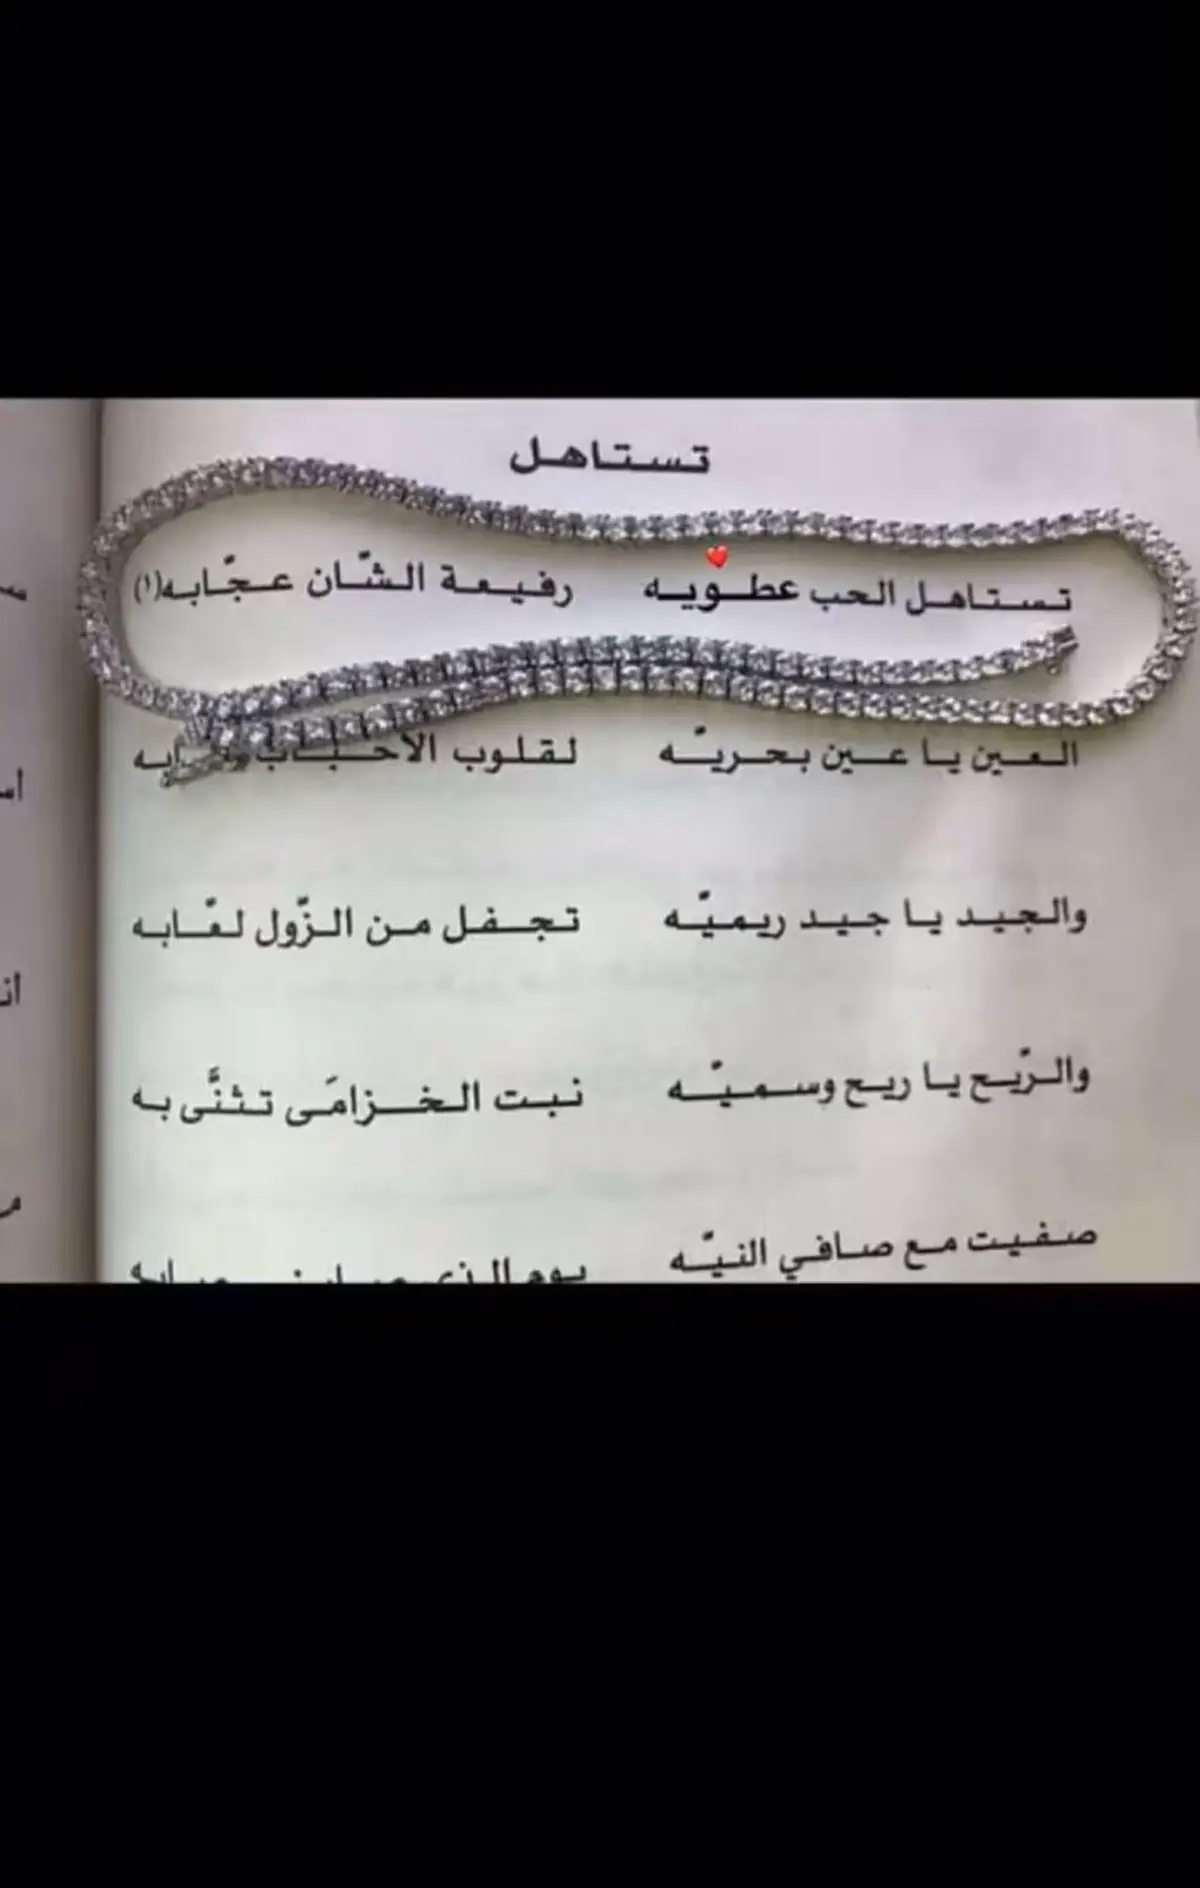 تستاهل
تستاهل الحب عطويه رفيعة الشّان عجّابه (١)
العين يا عين بحريّه لقلوب الأحباب
والجيد يا جيد ريميّه تجفل من الزّول لعّابه
والرّيح يا ريح وسميّه نبت الخزامَى تثنَّى به
صفيت مع صافي النيّه يوم الذي